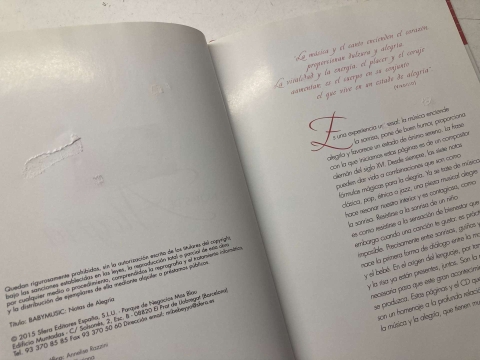 Quedan rigurosamente prohibidas, sin la autorización escrita de los titulares del copyright,
bajo las sanciones establecidas en las leyes, la reproducción total o parcial de esta obra
por cualquier medio o procedimiento, comprendidos la reprografía y el tratamiento informático,
y la distribución de ejemplares de ella mediante alquiler o préstamos públicos.
Título: BABYMUSIC: Notas de Alegría
© 2015 Sfera Editores España, S.L.U. - Parque de Negocios Mas Blau
Edificio Muntadas - C/ Solsonès, 2, Esc. B - 08820 El Prat de Llobregat (Barcelona)
Tel: 93 370 85 85 Fax 93 370 50 60
Annelise Rossini
"La música y el canto encienden el corazón
proporcionan dulzura y alegría
La vitalidad y la energía, el placer y el coraje
aumentan, es el cuerpo en su conjunto
el que vive en un estado de alegría"
Es una experiencia la música enciende
la sonrisa, pone de buen humor, proporciona
alegría y favorece un estado de ánimo sereno. La frase
con la que iniciamos estas páginas es de un compositor
alemán del siglo XVI. Desde siempre, las siete notas
pueden dar vida a combinaciones que son como
fórmulas mágicas para la alegría. Ya se trate de música
clásica, pop, étnica o jazz, una pieza musical alegre
hace resonar nuestro interior y es contagiosa, como
la sonrisa. Resistirse a la sonrisa de un niño
es como resistirse a la sensación de bienestar que
embarga cuando una canción te gusta: es práctic
imposible. Precisamente entre sonrisas, guiños y
nace la primera forma de diálogo entre la m
y el bebé. En el origen del lenguaje, por tan
y la risa ya están presentes, juntas. Son la
necesaria para que este gran acontecimien
se produzca. Estas páginas y el CD que
son un homenaje a la profunda relació
la música y la alegría, que tienen mu